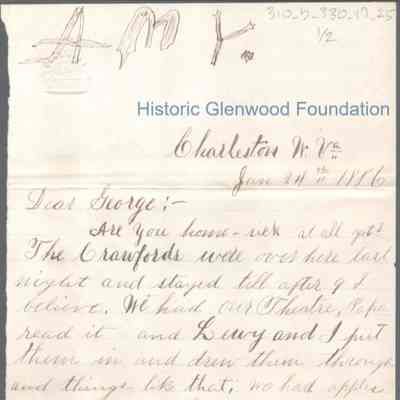 310-b-330-17-25
1/2
A M Y.
Historic Glenwood Foundation
Charleston W. Va
Jan 24th 1886
Dear George:-
Are you home-sick at all yet?
The Crawfords were over here last
night and stayed till after 9 I
believe. We had our Theatre, Papa
read it and Lewy and I put
them in and drew them through
and things like that, we had apples